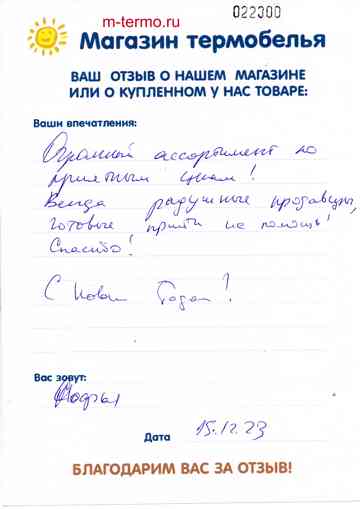 m-termo.ru
022300
Магазин термобелья
ВАШ ОТЗЫВ О НАШЕМ МАГАЗИНЕ
ИЛИ О КУПЛЕННОМ У НАС ТОВАРЕ:
Ваши впечатления:
Огромный ассортимент по
приятным ценам!
Всегда радушные продавцы,
готовые прийти на помощь!
Спасибо!
С Новым Годом!
Вас зовут:
Дата 15.12.23
БЛАГОДАРИМ ВАС ЗА ОТЗЫВ!